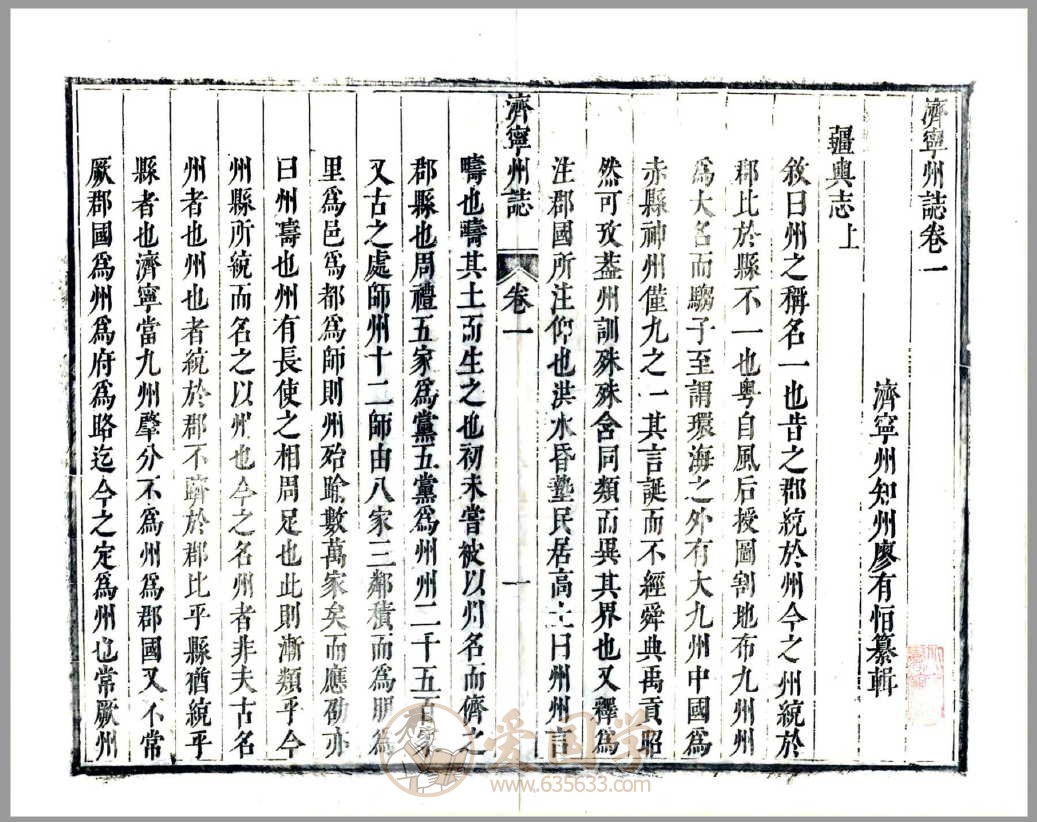 濟寧州誌卷一
濟寧州知州廖有恒纂輯
疆輿志上
敘曰州之稱名一也昔之郡統於州今之州統於
郡比於縣不一也粤自風后授圖割地布九州州
爲大名而騶子至謂環海之外有大九州中國爲
赤縣神州僅九之一其言誕而不經舜典禹貢昭
然可攷葢州訓殊殊舍同類而異其界也又釋爲
注郡國所注仰也洪水昏墊民居高土曰州州言
濟寧州誌 卷一 一
疇也疇其土而生之也初未嘗被以州名而儕之
郡縣也周禮五家爲黨五黨爲州州二千五百家
又古之處師州十二師由八家三鄰積而爲朋爲
里爲邑爲都爲師則州殆踰數萬家矣而應劭亦
曰州壽也州有長使之相周足也此則漸類乎今
州縣所統而名之以州也今之名州者非夫古名
州者也州也者統於郡不躋於郡比乎縣猶統乎
縣者也濟寧當九州肇分不爲州爲郡國又不常
厥郡國爲州爲府爲路迄今之定爲州也常厥州
爱国学
www.635633.com